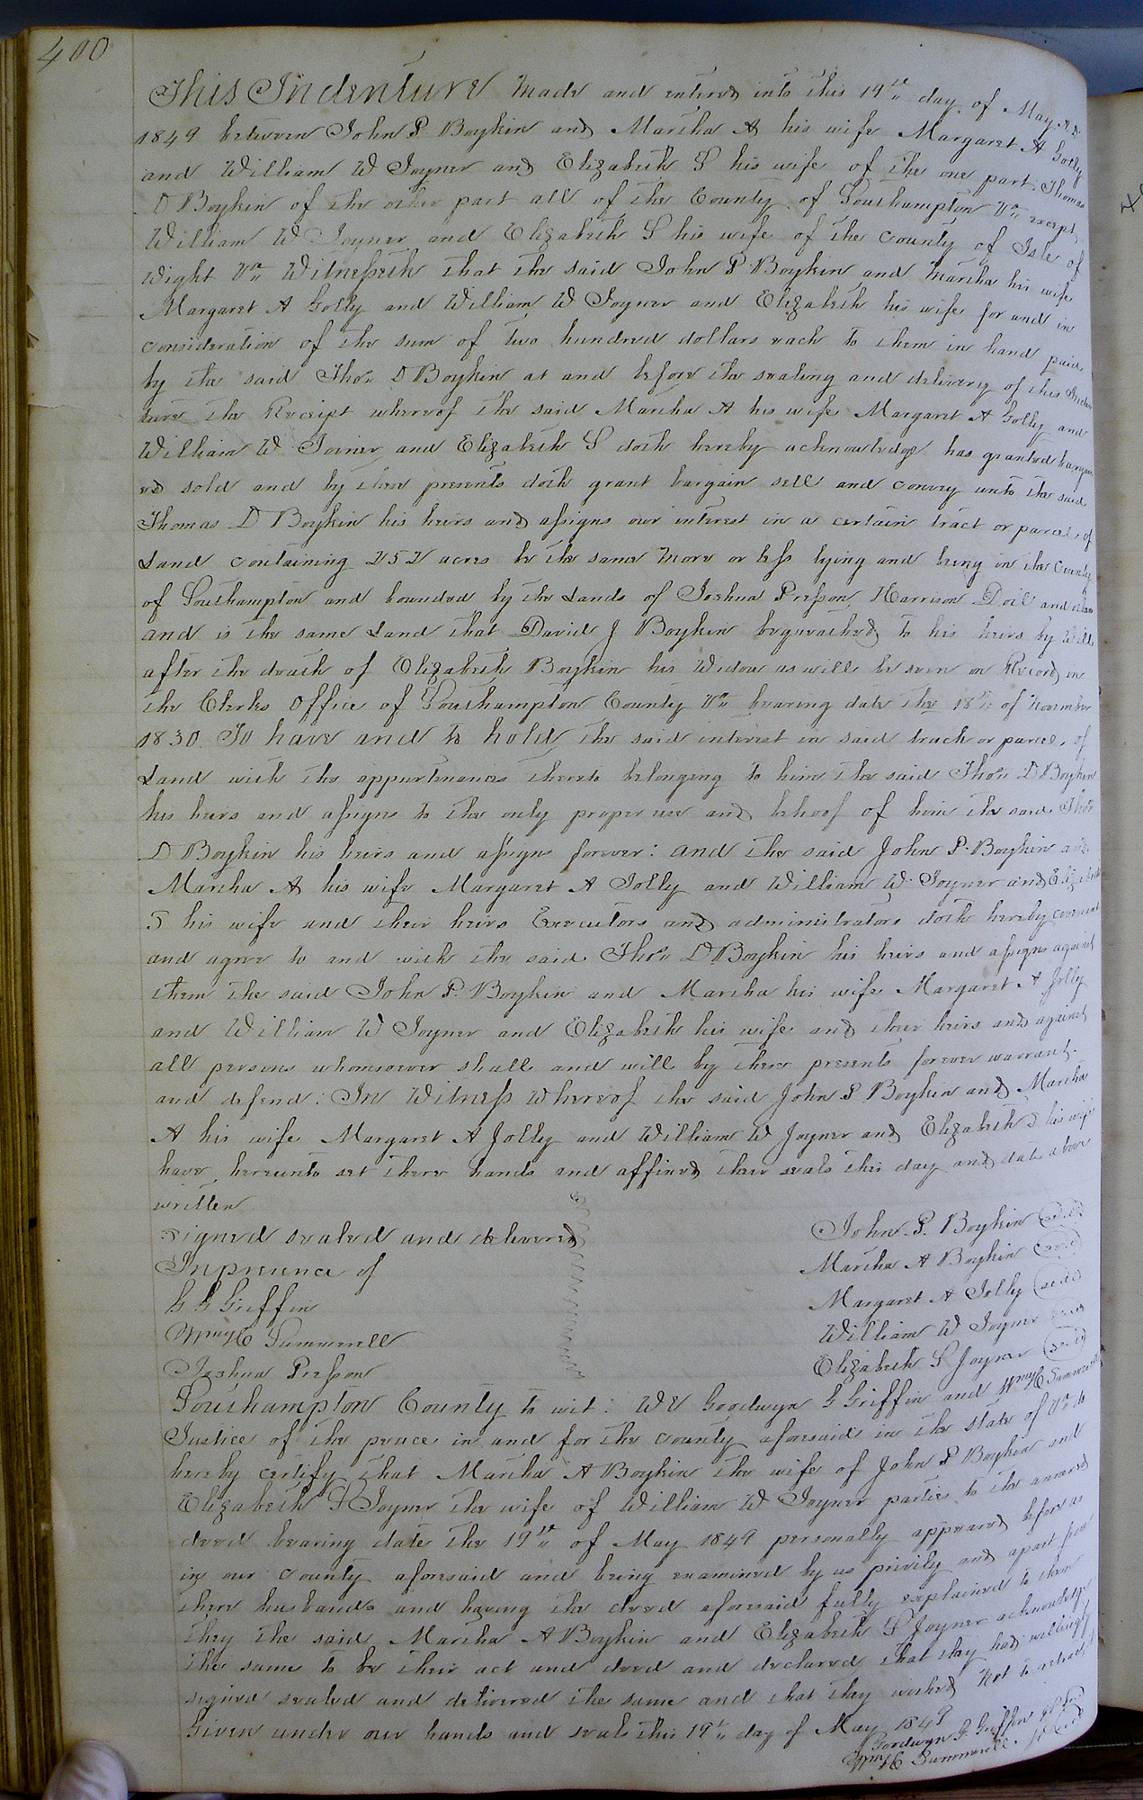 400
This Indenture Made and entered into this 19th day of May A.D.
1849 between John P Boykin and Martha A his wife Margaret A Jolly
and William W Joyner and Elizabeth S his wife of the one part Thomas
D Boykin of the other part all of the County of Southampton Va except
William W Joyner and Elizabeth S his wife of the County of Isle of
Wight Va Witnesseth that the said John P Boykin and Martha his wife
Margaret A Jolly and William W Joyner and Elizabeth his wife for and in
consideration of the sum of two hundred dollars each to them in hand paid
by the said Thos D Boykin at and before the sealing and delivery of this Inden
ture the Receipt whereof the said Martha A his wife Margaret A Jolly and
William W Joiner and Elizabeth S doth hereby acknowledge has granted bargain
ed sold and by these presents doth grant bargain sell and convey unto the said
Thomas D Boykin his heirs and assigns our interest in a certain tract or parcel of
Land containing 252 acres be the same More or less lying and being in the County
of Southampton and bounded by the Lands of Joshua Presson Harrison Doil and others
and is the same Land that David J Boykin bequeathed to his heirs by Will
after the death of Elizabeth Boykin his Widow as will be seen on Record in
the Clerks Office of Southampton County Va bearing date the 18th of November
1830. To have and to hold the said interest in said track or parcel of
Land with the appurtenances thereto belonging to him the said Thos D Boykin
his heirs and assigns to the only proper use and behoof of him the said Thos
D Boykin his heirs and assigns forever: and the said John P. Boykin and
Martha A his wife Margaret A Jolly and William W. Joyner and Elizabeth
S his wife and their heirs Executors and administrators doth hereby covenant
and agree to and with the said Thos D. Boykin his heirs and assigns against
them the said John P. Boykin and Martha his wife Margaret A Jolly
and William W Joyner and Elizabeth his wife and their heirs and against
all persons whomsoever shall and will by these presents forever warrant
and defend: In Witness Whereof the said John P Boykin and Martha
A his wife Margaret A Jolly and William W Joyner and Elizabeth S his wife
have hereunto set there hands and affixed their seals this day and date above
written
Signed sealed and delivered
In presence of
G G Griffin
Wm H C Summerell
Joshua Presson
John P. Boykin (seal)
Martha A Boykin (seal)
Margaret A Jolly (seal)
William W Joyner (seal)
Elizabeth S Joyner (seal)
Southampton County to wit: We Goodwyn G Griffin and Wm H C Summerell
Justice of the peace in and for the county aforesaid in the state of Va do
hereby certify that Martha A Boykin the wife of John P Boykin and
Elizabeth S Joyner the wife of William W Joyner parties to the annexed
deed bearing date the 19th of May 1849 personally appeared before us
in our county aforesaid and being examined by us privily and apart from
there husbands and having the deed aforesaid fully explained to them
they the said Martha A Boykin and Elizabeth S Joyner acknowledge
the same to be their act and deed and declared that they had willingly
signed sealed and delivered the same and that they wished Not to retract
Given under our hands and seals this 19th day of May 1849
Goodwyn G Griffin
Wm H C Summerell